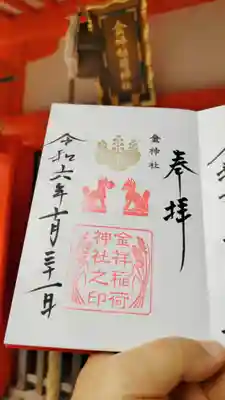 奉拝
金神社
金祥稲荷
神社之印
令和六年七月三十一日